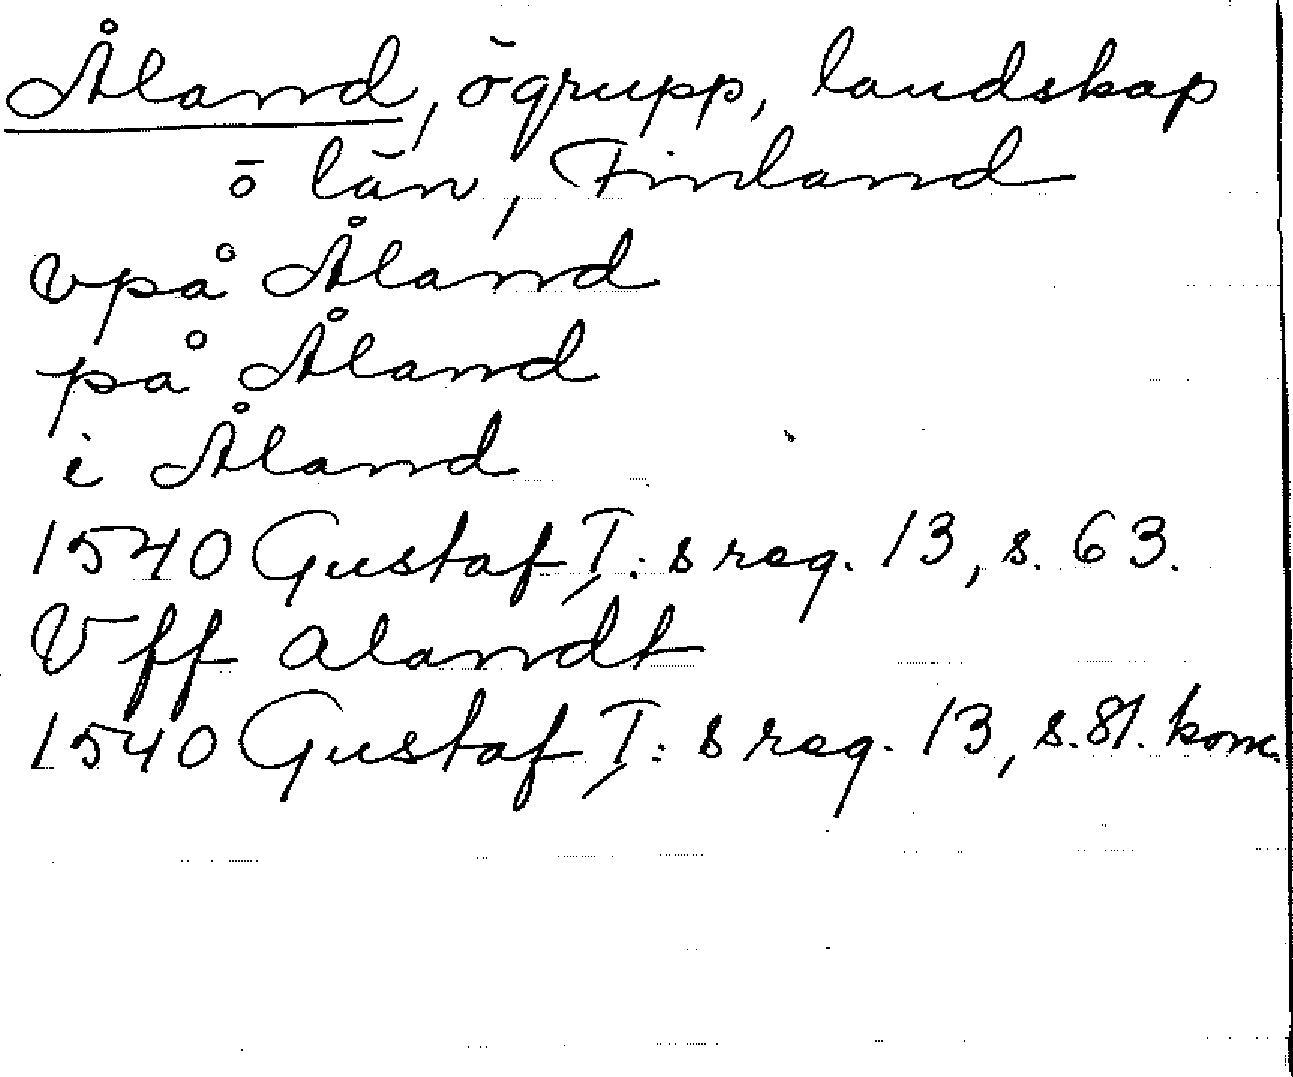 Åland, ögrupp, landskap
o län, Finland
vpå Åland
på Åland
i Åland
1540 Gustaf I:s reg. 13, s. 63.
Vff alandt
1540 Gustaf I:s reg. 13, s. 81. konc.